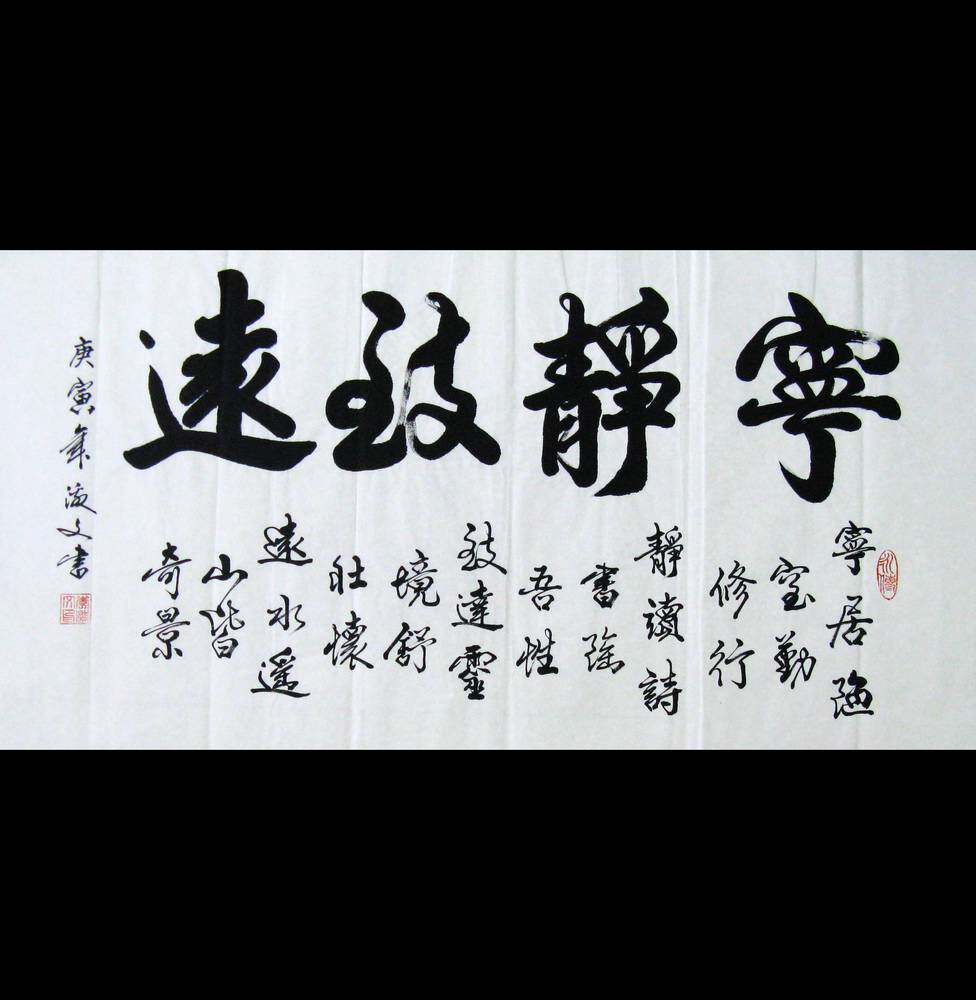 寧靜致遠
寧居陋
室勤
修行
靜讀詩
書陶
吾性
致達靈
境舒
壯懷
遠水遥
山皆
奇景
庚寅年海文書